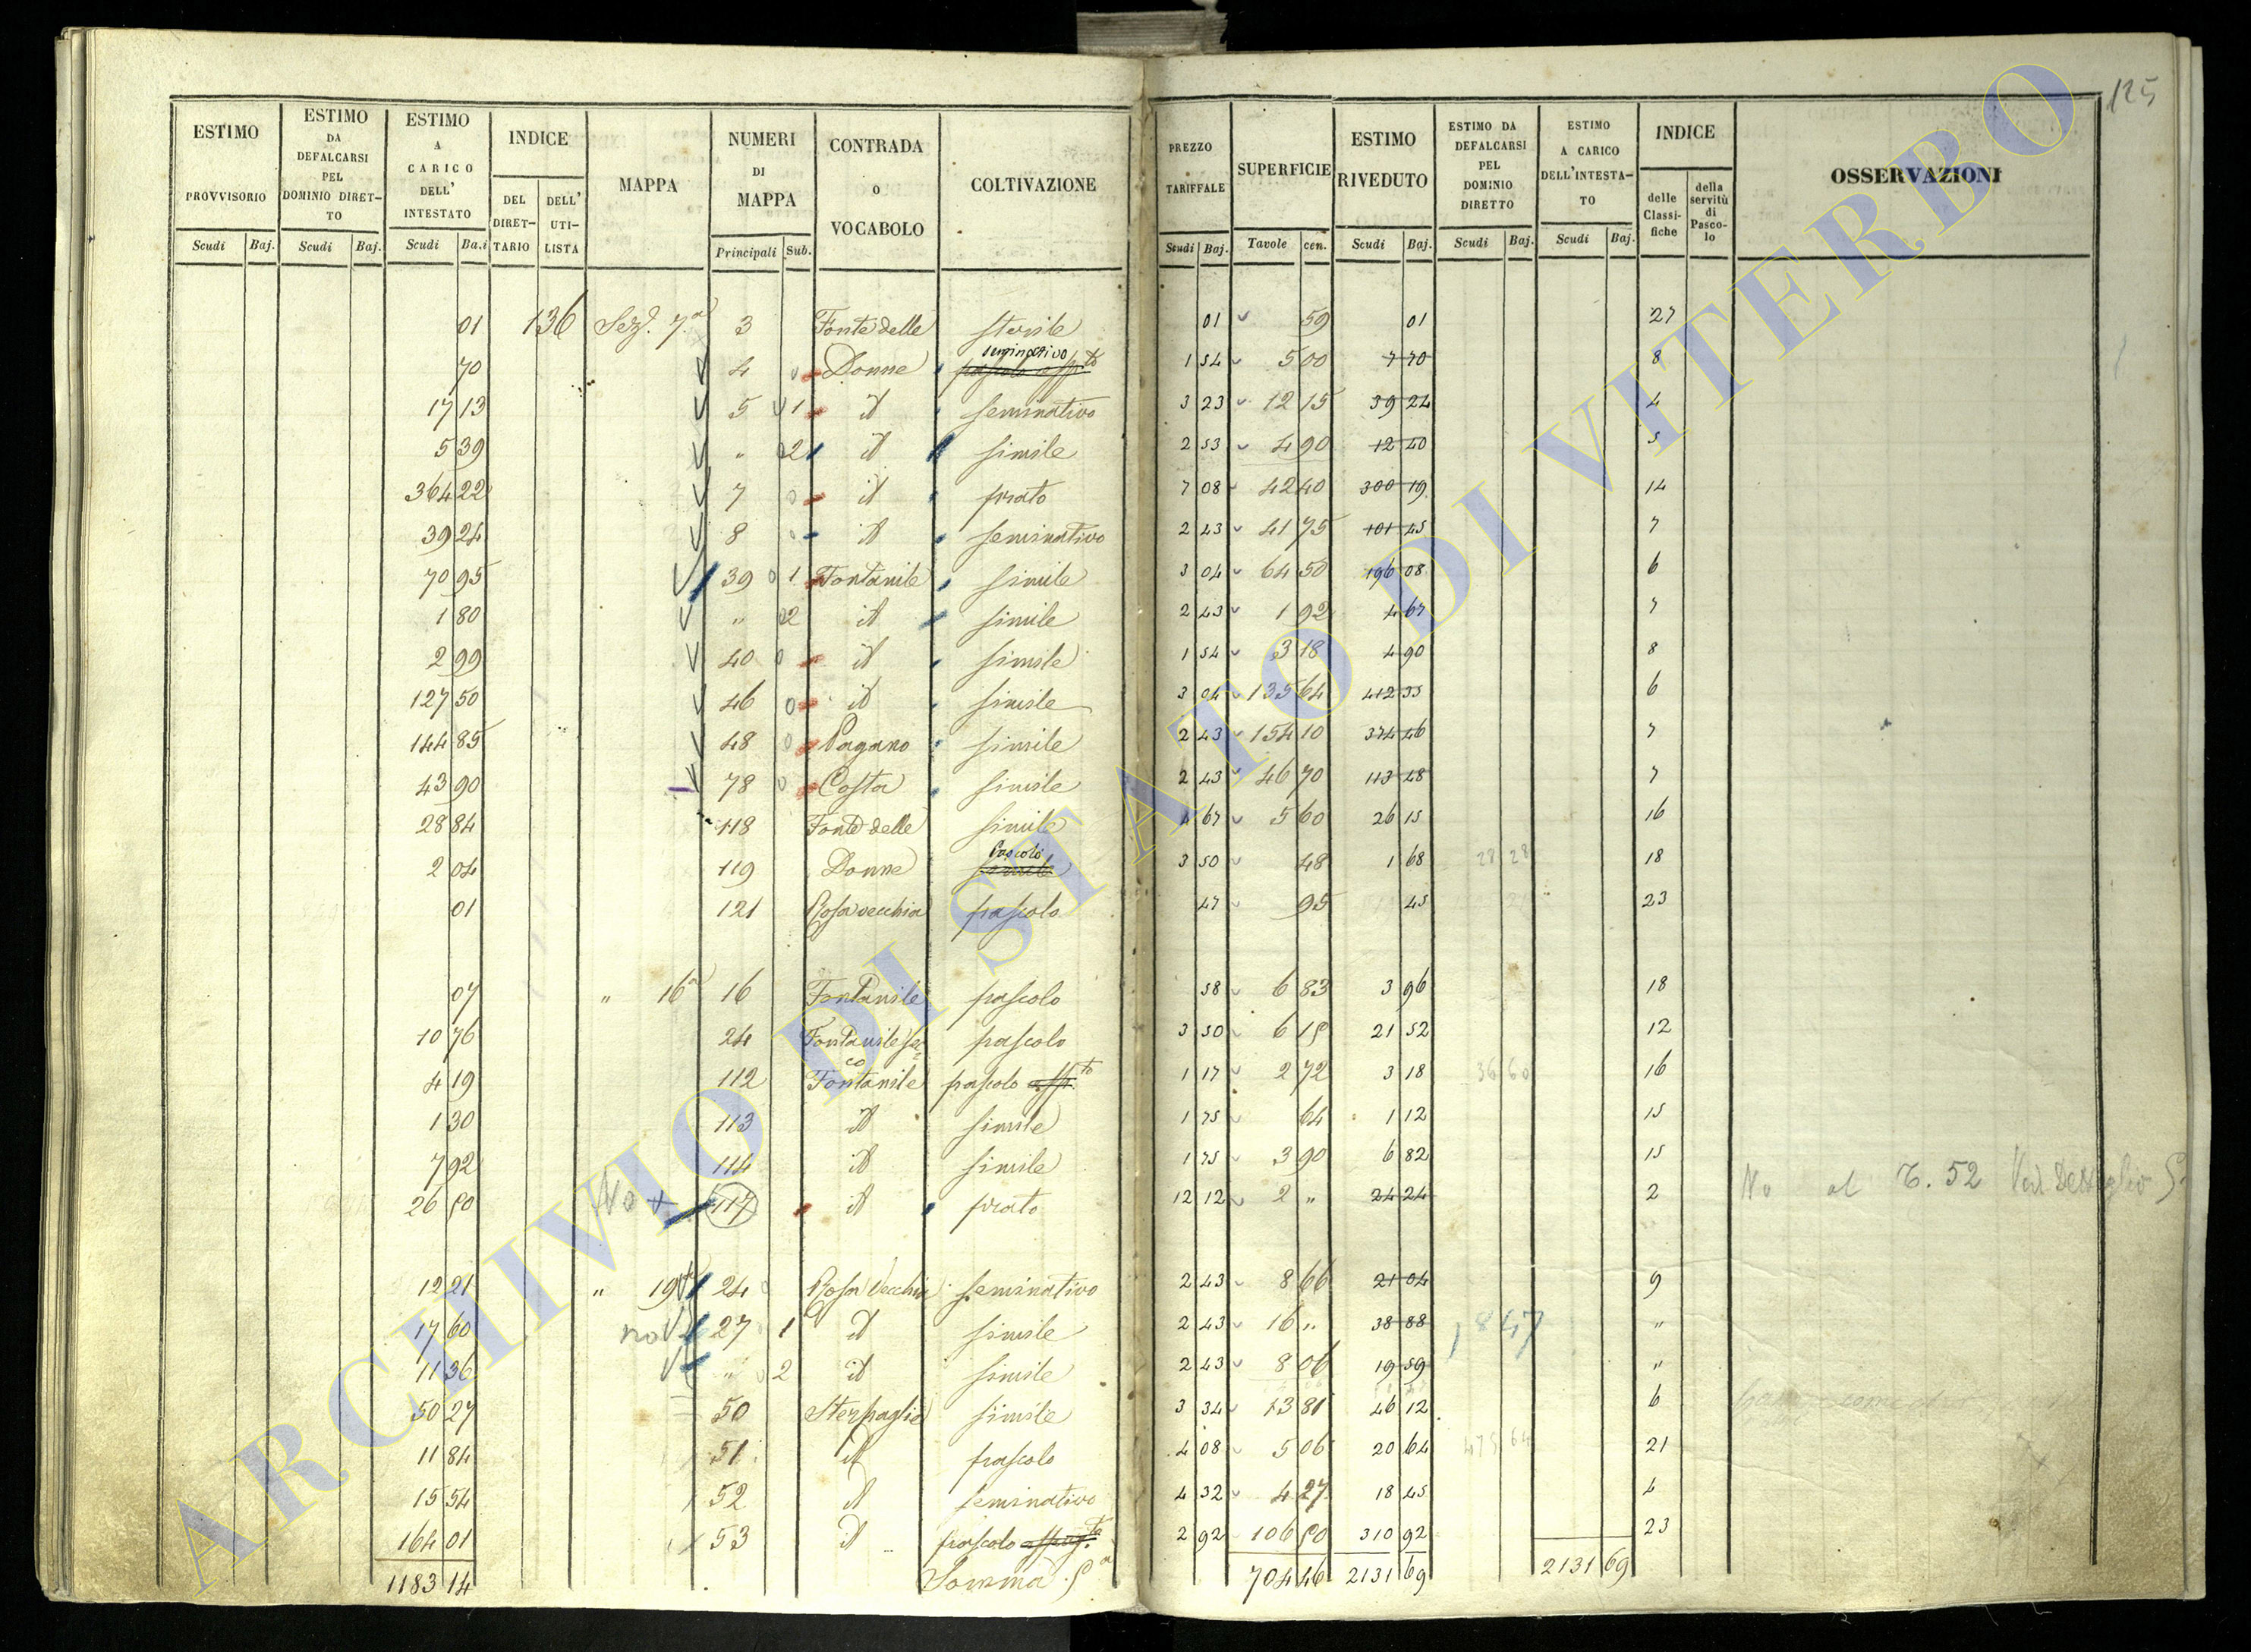 125
ESTIMO PROVVISORIO Scudi Baj.
ESTIMO DA DEFALCARSI PEL DOMINIO DIRETTO Scudi Baj.
ESTIMO A CARICO DELL' INTESTATO Scudi Ba.i
INDICE DEL DIRETTARIO DELL' UTILISTA
MAPPA
NUMERI DI MAPPA Principali Sub.
CONTRADA O VOCABOLO
COLTIVAZIONE
PREZZO TARIFFALE Scudi Baj.
SUPERFICIE Tavole cen.
ESTIMO RIVEDUTO Scudi Baj.
ESTIMO DA DEFALCARSI PEL DOMINIO DIRETTO Scudi Baj.
ESTIMO A CARICO DELL'INTESTATO Scudi Baj.
INDICE delle Classifiche della servitù di Pascolo
OSSERVAZIONI
01 136 Sez. 7.a 3 Fonte delle sterile 01 59 01 27
70 4 0 Donne seminativo pascolo app.to 1 54 5 00 7 70 8
17 13 5 1 id seminativo 3 23 12 15 39 24 4
5 39 " 2 id simile 2 53 4 90 12 40 5
364 22 7 0 id prato 7 08 42 40 300 19 14
39 24 8 0 id seminativo 2 43 41 75 101 45 7
70 95 39 0 1 Fontanile simile 3 04 64 50 196 08 6
1 80 " 2 id simile 2 43 1 92 4 67 7
2 99 40 0 id simile 1 54 3 18 4 90 8
127 50 46 0 id simile 3 04 135 64 412 35 6
144 85 48 0 Pagano simile 2 43 154 10 374 46 7
43 90 78 0 Costa simile 2 43 46 70 113 48 7
28 84 118 Fonte delle simile 4 67 5 60 26 15 16
2 04 119 Donne Pascolo simile 3 50 48 1 68 28 28 18
01 121 Rosa vecchia pascolo 47 95 45 23
07 " 16a 16 Fontanile pascolo 58 6 83 3 96 18
10 76 24 Fontanile sec=co pascolo 3 50 6 15 21 52 12
4 19 112 Fontanile pascolo app.to 1 17 2 72 3 18 36 60 16
1 30 113 id simile 1 75 64 1 12 15
7 92 114 id simile 1 75 3 90 6 82 15
26 50 No + 117 id prato 12 12 2 " 24 24 2 No al 52
12 21 " 19 24 0 Rosa Vecchia seminativo 2 43 8 66 21 04 9
17 60 no 27 1 id simile 2 43 16 " 38 88 847 "
11 36 " 2 id simile 2 43 8 06 19 59 "
50 27 50 Sterpaglie simile 3 34 13 81 46 12 6
11 84 51 id pascolo 4 08 5 06 20 64 475 64 21
15 54 52 id seminativo 4 32 4 27 18 45 4
164 01 53 id pascolo 2 92 106 50 310 92 23
1183 14 Somma 704 46 2131 69 2131 69
ARCHIVIO DI STATO DI VITERBO